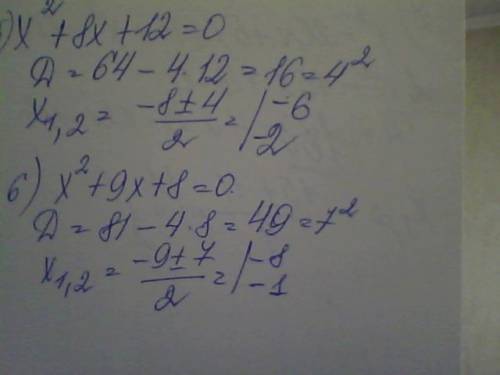 ) x² + 8x + 12 = 0
Д = 64 - 4·12 = 16 = 4²
x₁,₂ = (-8 ± 4)/2 = | -6
-2
6) x² + 9x + 8 = 0.
Д = 81 - 4·8 = 49 = 7²
x₁,₂ = (-9 ± 7)/2 = | -8
-1